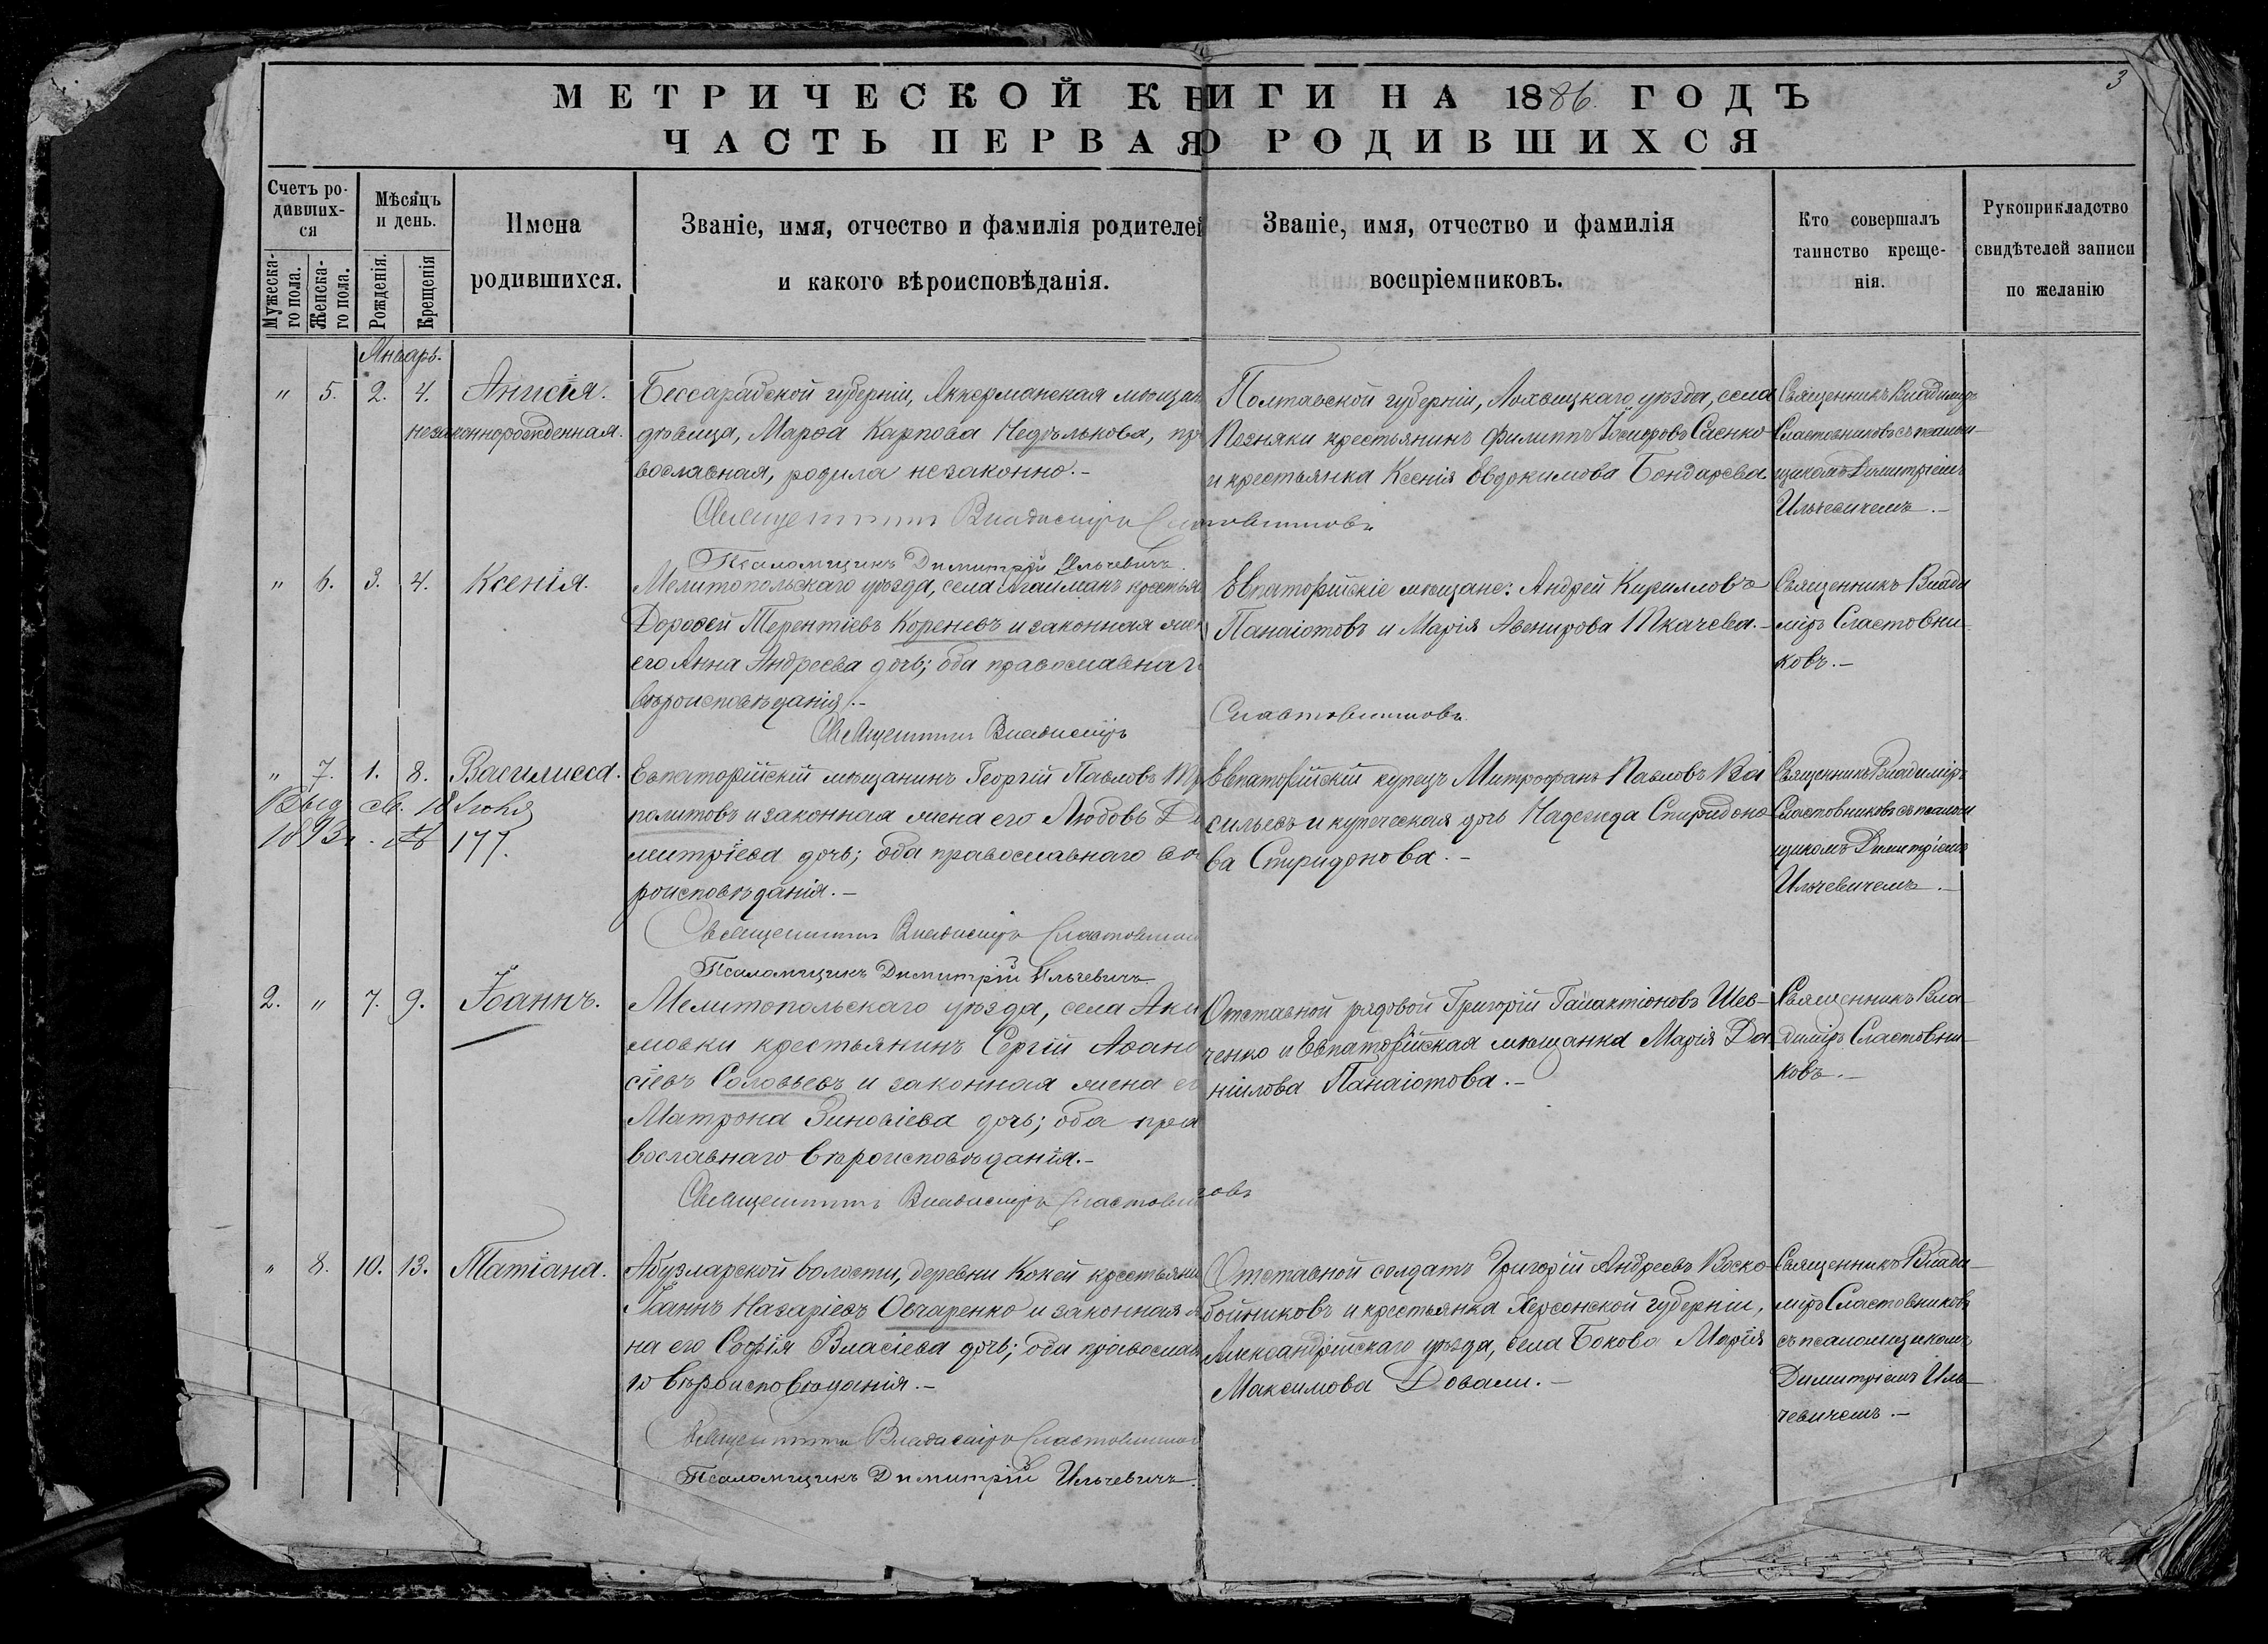 МЕТРИЧЕСКОЙ КНИГИ НА 1886 ГОДЪ
3
ЧАСТЬ ПЕРВАЯ О РОДИВШИХСЯ
Счетъ ро-
дивших-
ся
Мужеска-
го пола.
Женска-
го пола.
Мѣсяцъ
и день.
Рожденія.
Крещенія
Имена
родившихся.
Званіе, имя, отчество и фамилія родителей
и какого вѣроисповѣданія.
Званіе, имя, отчество и фамилія
воспріемниковъ.
Кто совершалъ
таинство креще-
нія.
Рукоприкладство
свидѣтелей записи
по желанію
Январь.
" 5. 2. 4. Анисія.
незаконнорожденная.
Бессарабской губерніи, Аккерманская мѣщан
дѣвица, Марѳа Карпова Недѣлькова, пр
вославная, родила незаконно.-
Священникъ Владиміръ Сластовниковъ
Псаломщикъ Димитрій Ильчевичъ.
Полтавской губерніи, Лохвицкаго уѣзда, села
Позняки крестьянинъ Филиппъ Саенко
и крестьянка Ксенія Евдокимова Бондарева
Священникъ Владиміръ
Сластовниковъ съ псалом-
щикомъ Димитріемъ
Ильчевичемъ.-
" 6. 3. 4. Ксенія.
Мелитопольскаго уѣзда, села Агайманъ крестья
Дороѳей Терентіевъ Кореневъ и законная жен
его Анна Андреева дочь; оба православнаг
вѣроисповѣданія.-
Священникъ Владиміръ Сластовниковъ
Евпаторійскіе мѣщане: Андрей Кирилловъ
Панаіотовъ и Марія Авенирова Ткачева.-
Священникъ Влади
міръ Сластовни-
ковъ.-
" 7. 1. 8. Василисса.
Выд св. 18 Іюня
1893г. № 177.
Евпаторійскій мѣщанинъ Георгій Павловъ
политовъ и законная жена его Любовь Ди
митріева дочь; оба православнаго вѣ
роисповѣданія.-
Священникъ Владиміръ Сластовников
Псаломщикъ Димитрій Ильчевичъ
Евпаторійскій купецъ Митрофанъ Павловъ Ва
сильевъ и купеческая дочь Надежда Спиридоно
ва Спиридонова.-
Священникъ Владиміръ
Сластовниковъ съ псалом
щикомъ Димитріемъ
Ильчевичемъ.-
2. " 7. 9. Іоаннъ.
Мелитопольскаго уѣзда, села Аки
мовки крестьянинъ Сергій Аѳана
сіевъ Соловьевъ и законная жена ег
Матрона Зиновіева дочь; оба пра
вославнаго вѣроисповѣданія.-
Священникъ Владиміръ Сластовниковъ
Отставной рядовой Григорій Галактіоновъ Шев-
ченко и Евпаторійская мѣщанка Марія Да
ніилова Панаіотова.-
Священникъ Вла-
диміръ Сластовни-
ковъ.-
" 8. 10. 13. Татіана.
Абузларской волости, деревни Кокей крестьяни
Іоаннъ Назаріевъ Овчаренко и законная ж
на его Софія Власіева дочь; оба православн
го вѣроисповѣданія.-
Священникъ Владиміръ Сластовников
Псаломщикъ Димитрій Ильчевичъ.
Отставной солдатъ Григорій Андреевъ Воско-
бойниковъ и крестьянка Херсонской губерніи,
Александрійскаго уѣзда, села Боково Марія
Максимова Довали.-
Священникъ Влади-
міръ Сластовниковъ
съ псаломщикомъ
Димитріемъ Иль-
чевичемъ.-